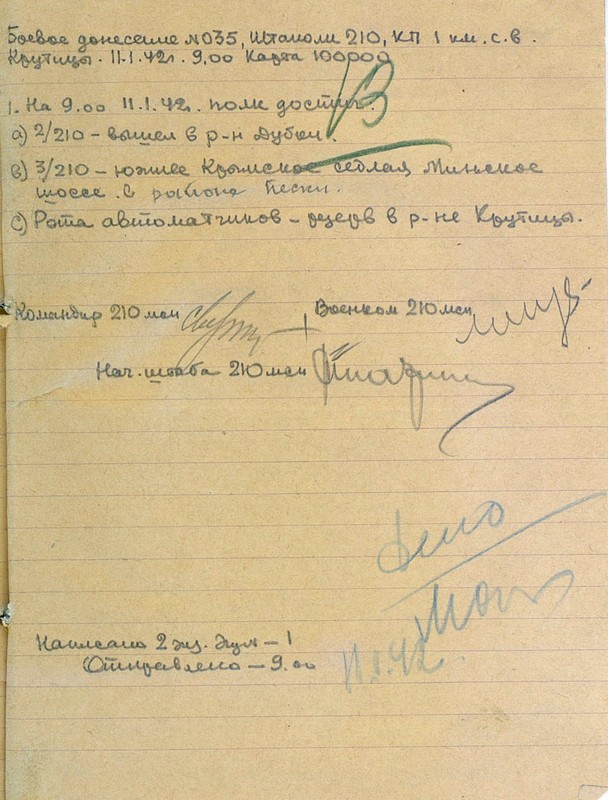 Боевое донесение №035, Штаполк 210, КП 1 км. с.в.
Крутицы. 11.1.42г. 9.00 Карта 100000
1. На 9.00 11.1.42г. полк достиг:
а) 2/210 – вышел в р-н Дубки.
в) 3/210 – южнее Крымское седлая Минское
шоссе в районе Пески.
с) Рота автоматчиков – резерв в р-не Крутицы.
Командир 210 мсп
Военком 210 мсп
Нач. штаба 210 мсп
Дело
11.1.42.
Написано 2 экз. Экз – 1
Отправлено – 9.00